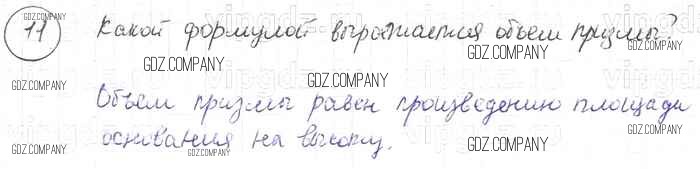 11 Какой формулой выражается объем призмы?
Объем призмы равен произведению площади
основания на высоту.
GDZ.COMPANY
GDZ.COMPANY
GDZ.COMPANY
GDZ.COMPANY
GDZ.COMPANY
GDZ.COMPANY
GDZ.COMPANY
GDZ.COMPANY
GDZ.COMPANY
GDZ.COMPANY